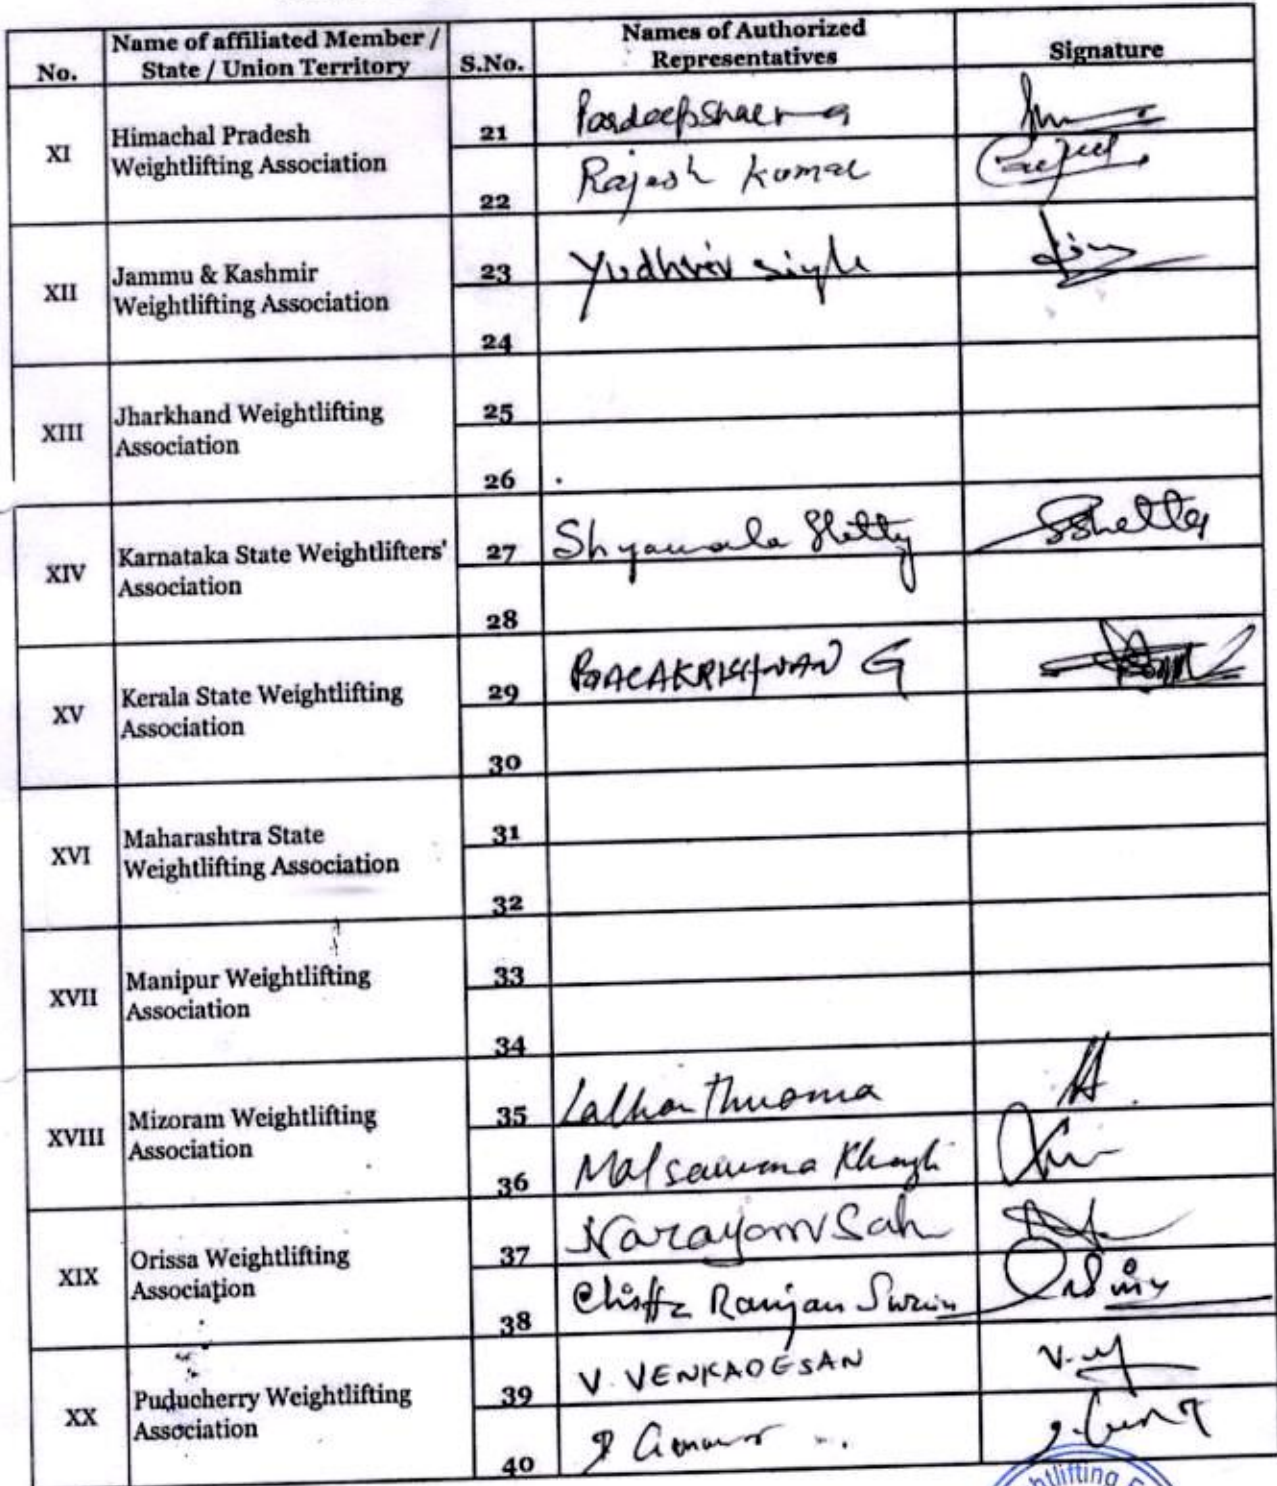 No.
Name of affiliated Member /
State / Union Territory
S.No.
Names of Authorized
Representatives
Signature
XI
Himachal Pradesh
Weightlifting Association
21
Pardeep Sharma
22
Rajesh Kumar
XII
Jammu & Kashmir
Weightlifting Association
23
Yudhvir Singh
24
XIII
Jharkhand Weightlifting
Association
25
26
XIV
Karnataka State Weightlifters'
Association
27
Shyamala Shetty
SShetty
28
XV
Kerala State Weightlifting
Association
29
BALAKRISHNAN G
30
XVI
Maharashtra State
Weightlifting Association
31
32
XVII
Manipur Weightlifting
Association
33
34
XVIII
Mizoram Weightlifting
Association
35
36
Malsawma
XIX
Orissa Weightlifting
Association
37
Narayan Sah
38
Ranjan Swain
XX
Puducherry Weightlifting
Association
39
V. VENKADESAN
40